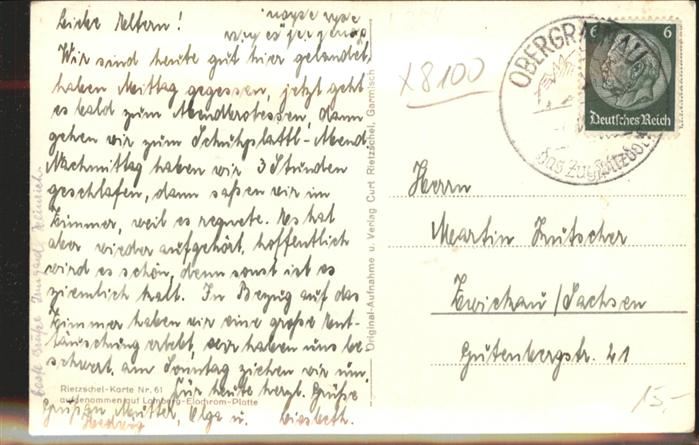 Liebe Eltern!
Wir sind heute gut hier gelandet,
haben Mittag gegessen, jetzt geht
es bald zum Abendbrotessen, dann
gehen wir zum Schuhplattl-Abend.
Nachmittag haben wir 3 Stunden
geschlafen, dann saßen wir im
Zimmer, weil es regnete. Es hat
aber wieder aufgehört, hoffentlich
wird es schön, denn sonst ist es
ziemlich kalt. In Bezug auf das
Zimmer haben wir eine große Ent-
täuschung erlebt, wir haben uns be-
schwert, am Sonntag ziehen wir um.
Für heute herzl. Grüße
Mutter, Olga u. Liesbeth.
Hedwig
beste Grüße Irmgard Heinrich
Rietzschel-Karte Nr. 61
aufgenommen auf Lomberg-Elochrom-Platte
Original-Aufnahme u. Verlag Curt Rietzschel, Garmisch
x8100
OBERGRAINAU
das Zugspitzdorf
6 6
Deutsches Reich
Herrn
Martin
Zwickau/Sachsen
Gutenbergstr. 21
15,-